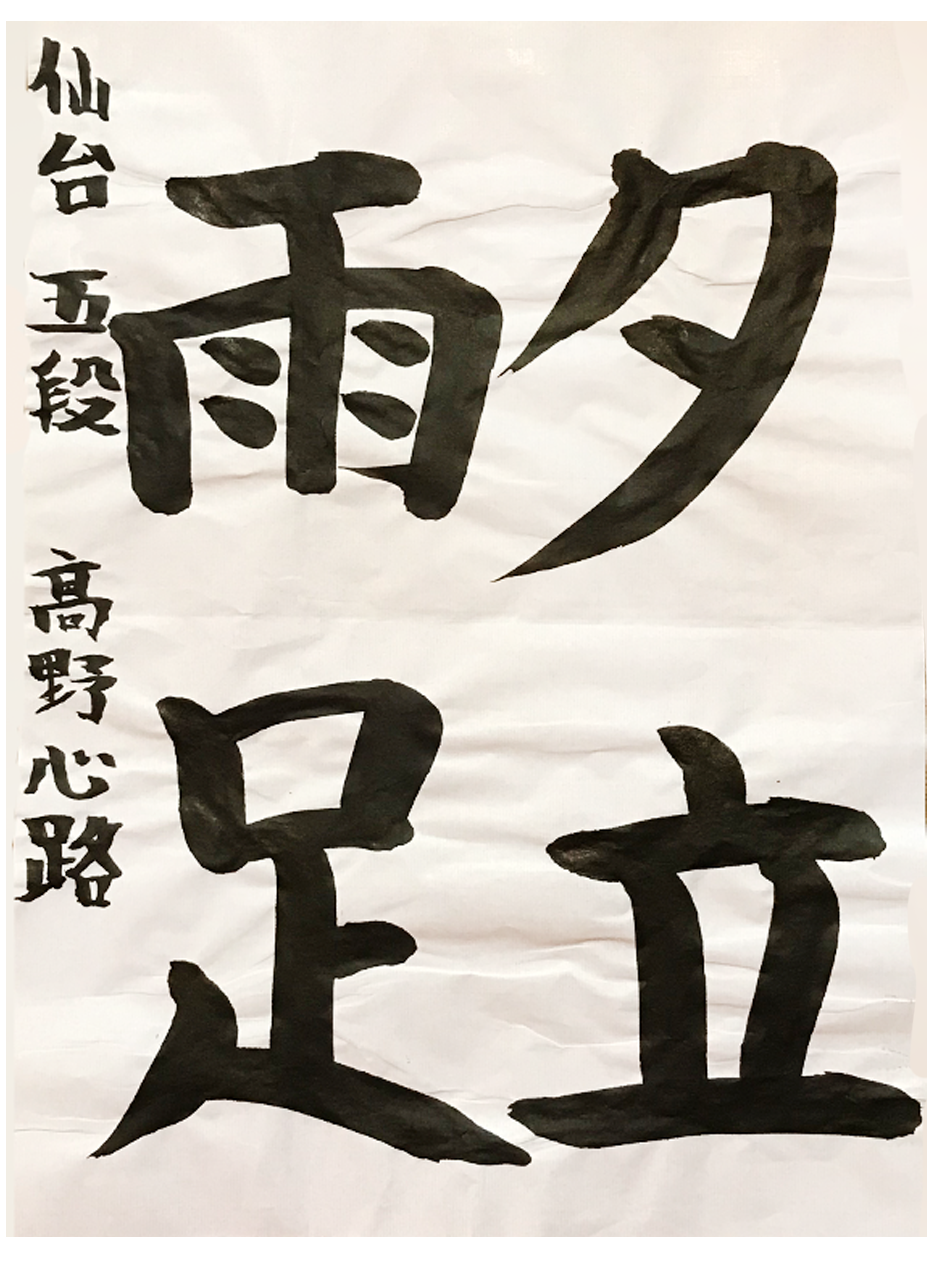 夕立
雨足
仙台 五段 高野心路